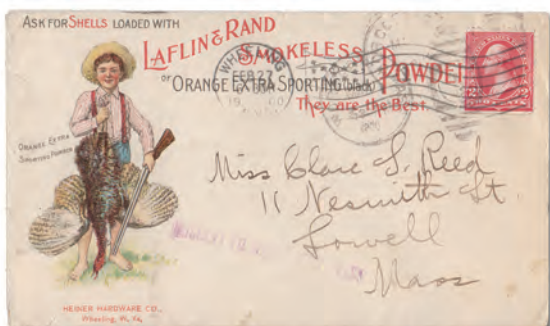 ASK FOR SHELLS LOADED WITH
LAFLIN & RAND
SMOKELESS POWDER
or ORANGE EXTRA SPORTING (black)
They are the Best
WHEELING
FEB 27
ORANGE EXTRA
SPORTING POWDER
Miss Clare S. Reed
11 Nesmith St.
Lowell
Mass
HEINER HARDWARE CO.,
Wheeling, W. Va.